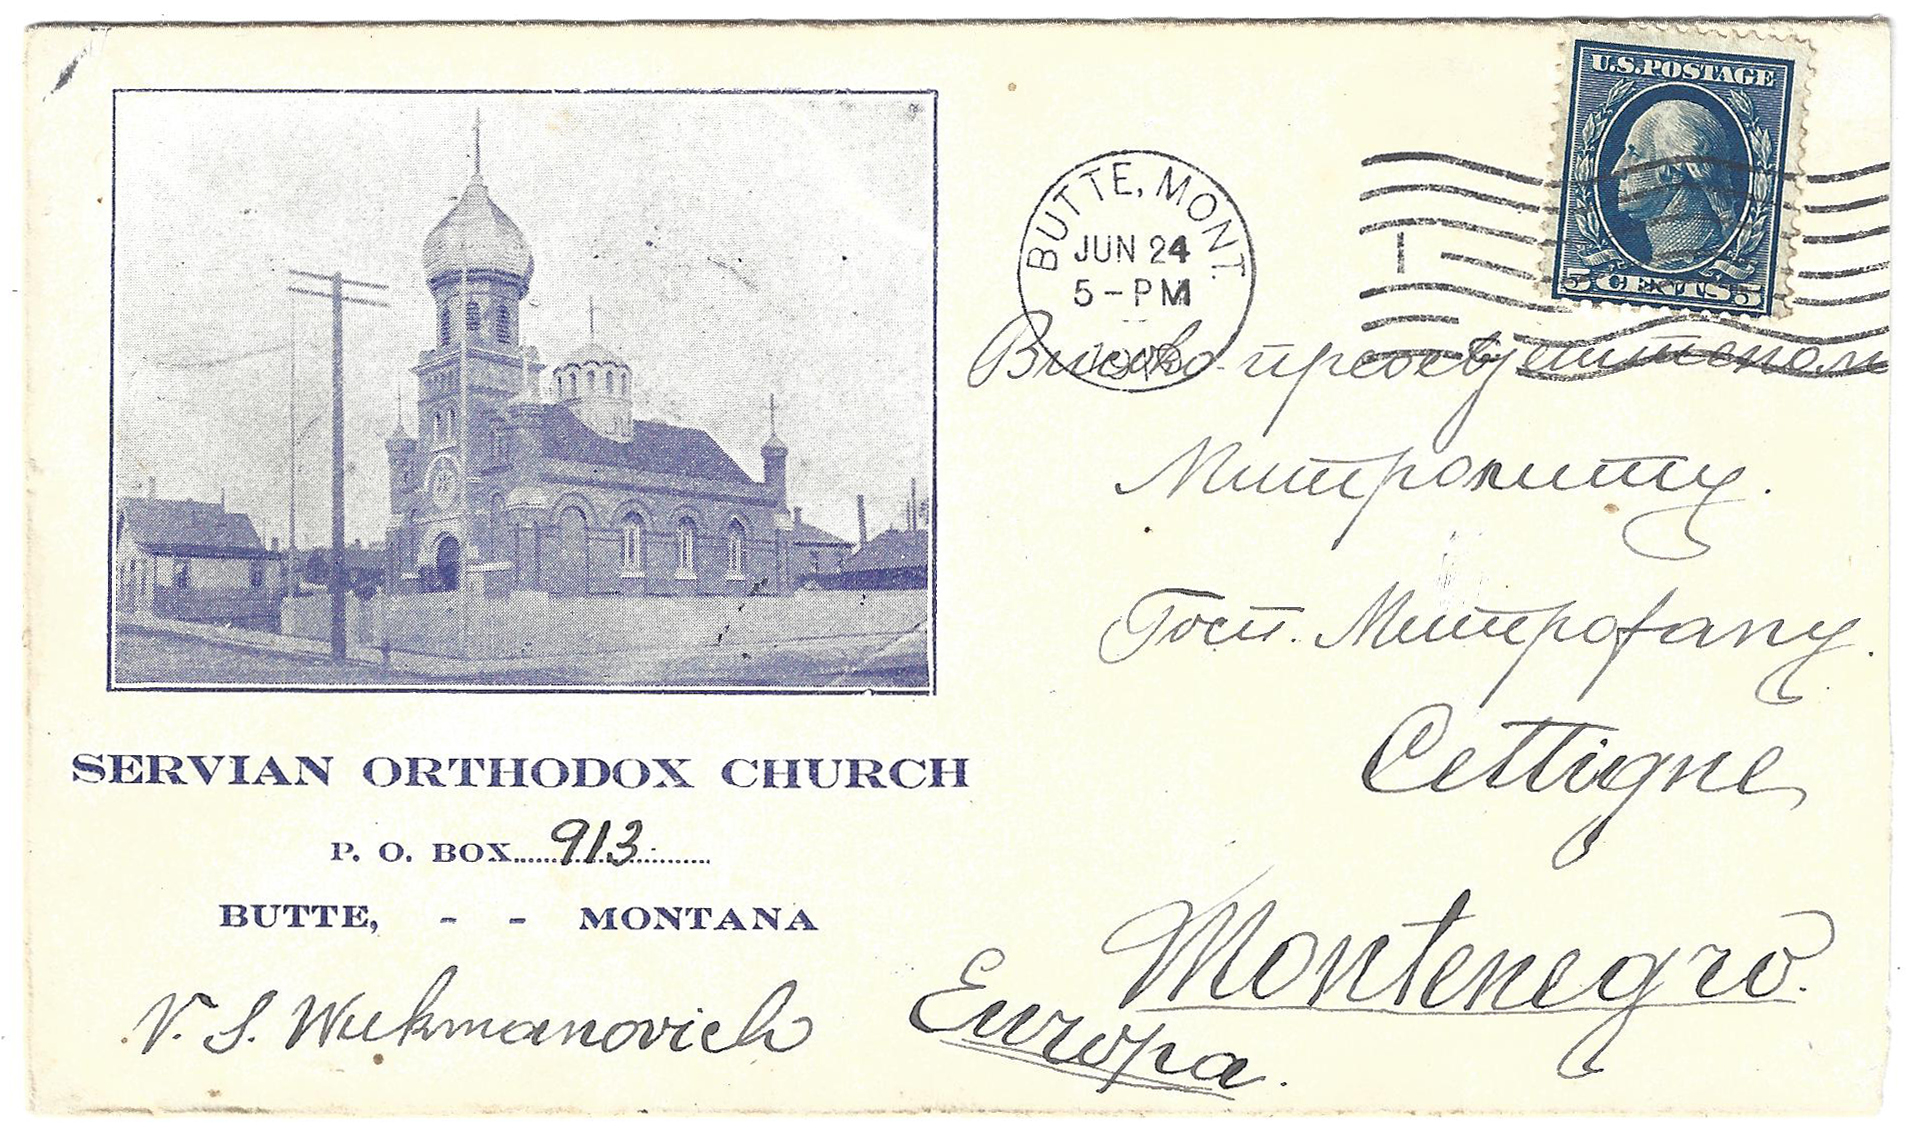 U.S. POSTAGE
5 CENTS 5
BUTTE, MONT.
JUN 24
5 - PM
1
Високо-преосвјештеном
Митрополиту.
Госп. Митрофану.
Cettigne
Montenegro.
Europa.
SERVIAN ORTHODOX CHURCH
P. O. BOX 913
BUTTE, - - MONTANA
V. S. Wukmanovich